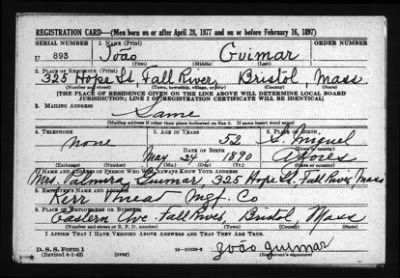 REGISTRATION CARD—(Men born on or after April 28, 1877 and on or before February 16, 1897)
SERIAL NUMBER 1. NAME (Print)
U 893 João Guimar
(First) (Middle) (Last)
2. PLACE OF RESIDENCE (Print)
325 Hope St, Fall River, Bristol, Mass
(Number and street) (Town, township, village, or city) (County) (State)
[THE PLACE OF RESIDENCE GIVEN ON THE LINE ABOVE WILL DETERMINE LOCAL BOARD
JURISDICTION; LINE 2 OF REGISTRATION CERTIFICATE WILL BE IDENTICAL]
3. MAILING ADDRESS
Same
[Mailing address if other than place indicated on line 2. If same insert word same]
4. TELEPHONE 5. AGE IN YEARS 6. PLACE OF BIRTH
none 52 S. Miguel
DATE OF BIRTH
May 24 1890 Azores
(Exchange) (Number) (Mo.) (Day) (Yr.) (State or country)
7. NAME AND ADDRESS OF PERSON WHO WILL ALWAYS KNOW YOUR ADDRESS
Mrs. Palmira Guimar, 325 Hope St, Fall River, Mass
8. EMPLOYER'S NAME AND ADDRESS
Kerr Thread Mfg. Co
9. PLACE OF EMPLOYMENT OR BUSINESS
Eastern Ave. Fall River, Bristol, Mass
(Number and street or R. F. D. number) (Town) (County) (State)
I AFFIRM THAT I HAVE VERIFIED ABOVE ANSWERS AND THAT THEY ARE TRUE.
D. S. S. Form 1
(Revised 4-1-42) (over)
João guimar
(Registrant's signature)